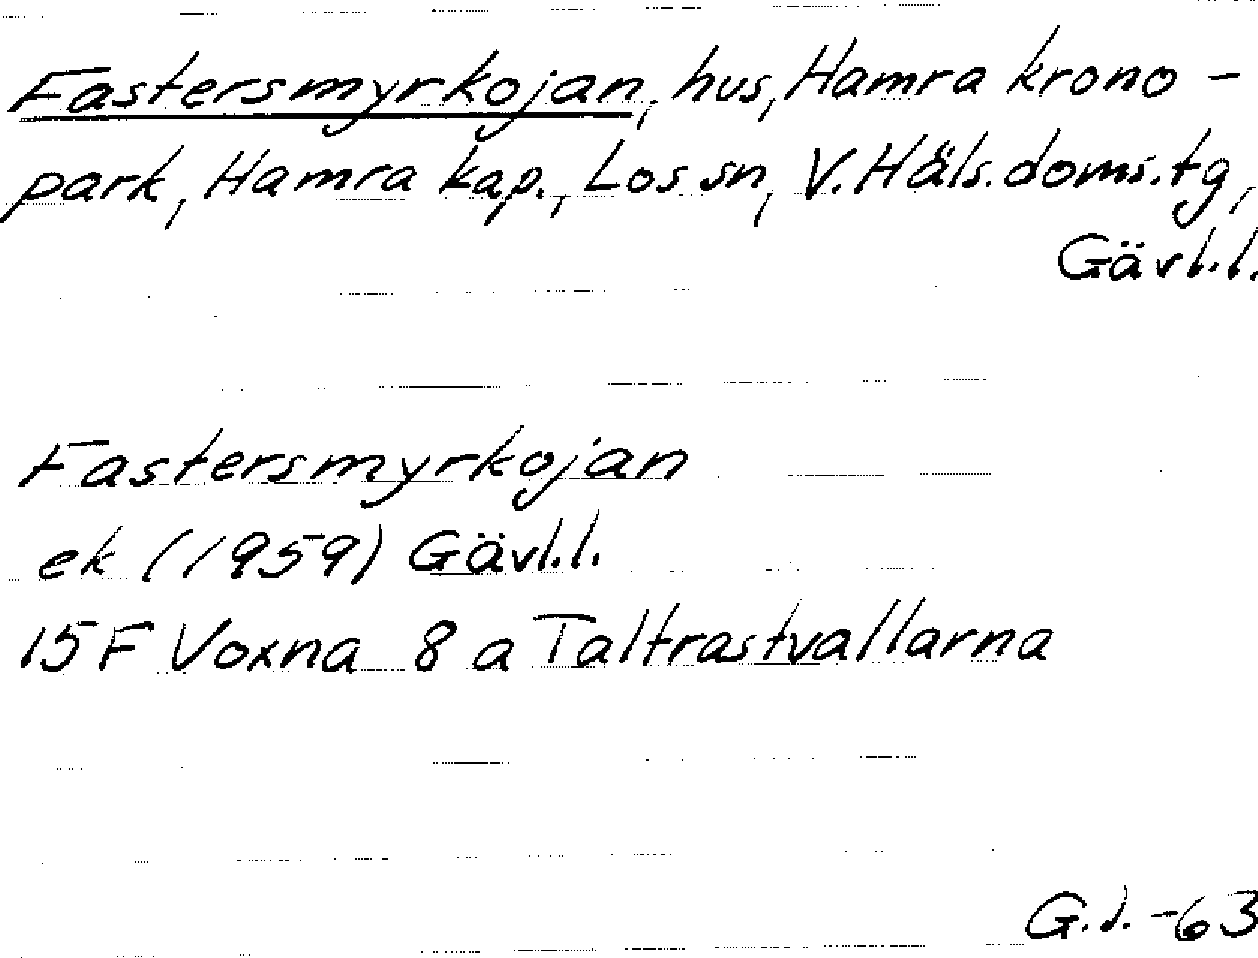 Fastersmyrkojan, hus, Hamra krono-
park, Hamra kap., Los sn, V. Häls. doms. tg,
Gävl.l.
Fastersmyrkojan
ek (1959) Gävl.l.
15F Voxna 8 a Taltrastvallarna
G.J. -63